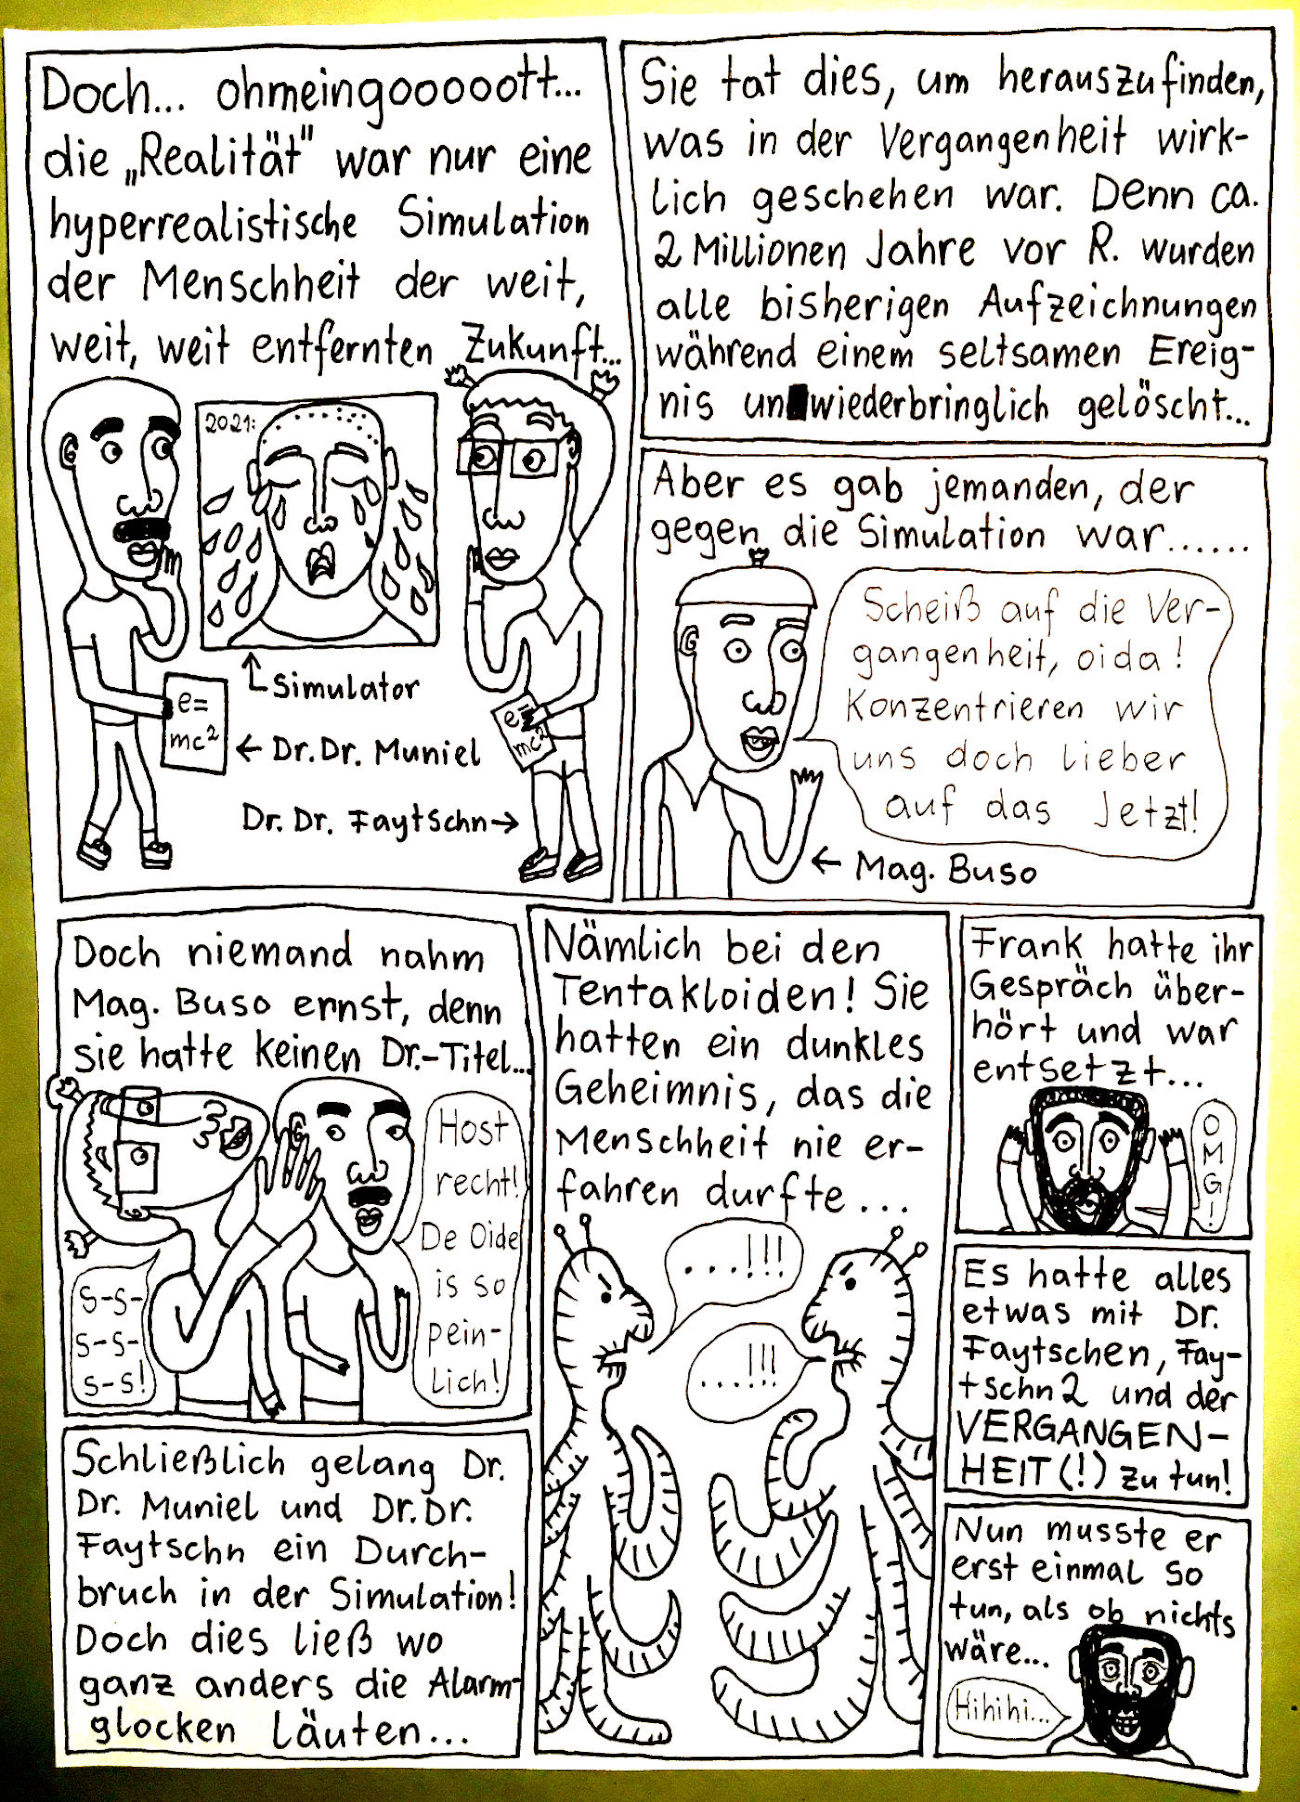 Doch... ohmeingooooott...
die „Realität" war nur eine
hyperrealistische Simulation
der Menschheit der weit,
weit, weit entfernten Zukunft...
2021:
e=
mc²
e=
mc²
Simulator
← Dr. Dr. Muniel
Dr. Dr. Faytschn →
Sie tat dies, um herauszufinden,
was in der Vergangenheit wirk-
lich geschehen war. Denn ca.
2 Millionen Jahre vor R. wurden
alle bisherigen Aufzeichnungen
während einem seltsamen Ereig-
nis unwiederbringlich gelöscht...
Aber es gab jemanden, der
gegen die Simulation war......
Scheiß auf die Ver-
gangenheit, oida!
Konzentrieren wir
uns doch lieber
auf das Jetzt!
← Mag. Buso
Doch niemand nahm
Mag. Buso ernst, denn
sie hatte keinen Dr.-Titel...
Host
recht!
De Oide
is so
pein-
lich!
S-S-
S-S-
S-S!
Schließlich gelang Dr.
Dr. Muniel und Dr. Dr.
Faytschn ein Durch-
bruch in der Simulation!
Doch dies ließ wo
ganz anders die Alarm-
glocken läuten...
Nämlich bei den
Tentakloiden! Sie
hatten ein dunkles
Geheimnis, das die
Menschheit nie er-
fahren durfte...
...!!!
...!!!
Frank hatte ihr
Gespräch über-
hört und war
entsetzt...
O
M
G
!
Es hatte alles
etwas mit Dr.
Faytschen, Fay-
tschn2 und der
VERGANGEN-
HEIT(!) zu tun!
Nun musste er
erst einmal so
tun, als ob nichts
wäre...
Hihihi...